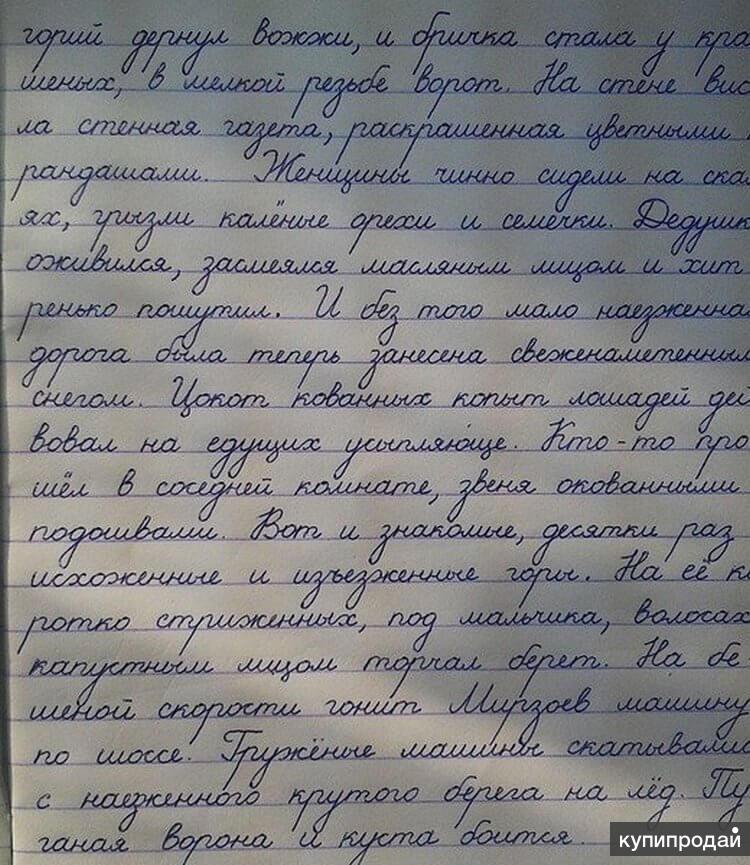 горий дернул вожжи, и бричка стала у кра
шеных, в мелкой резьбе ворот. На стене вис
ла стенная газета, раскрашенная цветными
рандашами. Женщины чинно сидели на ска
ях, грызли калёные орехи и семечки. Дедушк
оживился, засмеялся масляным лицом и хит
ренько пошутил. И без того мало наезженна
дорога была теперь занесена свеженаметенным
снегом. Цокот кованных копыт лошадей дей
вовал на едущих усыпляюще. Кто-то про
шёл в соседней комнате, звеня окованными
подошвами. Вот и знакомые, десятки раз
исхоженные и изъезженные горы. На её к
ротко стриженных, под мальчика, волосах
капустным лицом торчал берет. На бе-
шеной скорости гонит Мирзоев машину
по шоссе. Гружёные машины скатывалис
с наезженного крутого берега на лёд. Пу
ганая ворона и куста боится.
купипродай